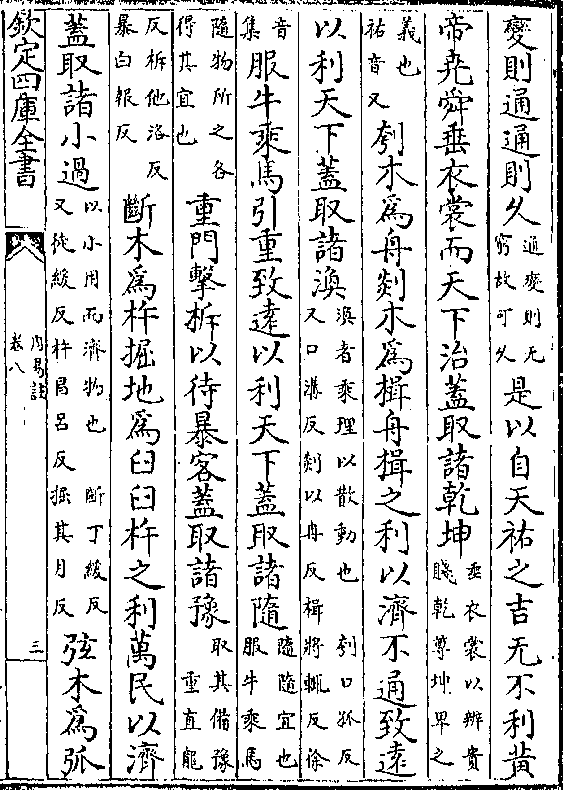 變則通通則久通變則无窮故可久是以自天祐之吉无不利黄
帝堯舜垂衣裳而天下治蓋取諸乾坤垂衣裳以辨貴賤乾尊坤卑之
義也祐音又刳木爲舟剡木爲楫舟楫之利以濟不通致遠
以利天下蓋取諸渙渙者乘理以散動也 刳口孤反又口溝反剡以冉反楫將輒反徐
音集服牛乘馬引重致遠以利天下蓋取諸隨隨隨宜也服牛乘馬
隨物所之各得其宜也重門擊柝以待暴客蓋取諸豫取其備豫重直龍
反柝他洛反暴白報反斷木爲杵掘地爲臼臼杵之利萬民以濟
蓋取諸小過以小用而濟物也 斷丁緩反又徒緩反杵昌呂反掘其月反弦木爲弧
欽定四庫全書 周易註 卷八 三